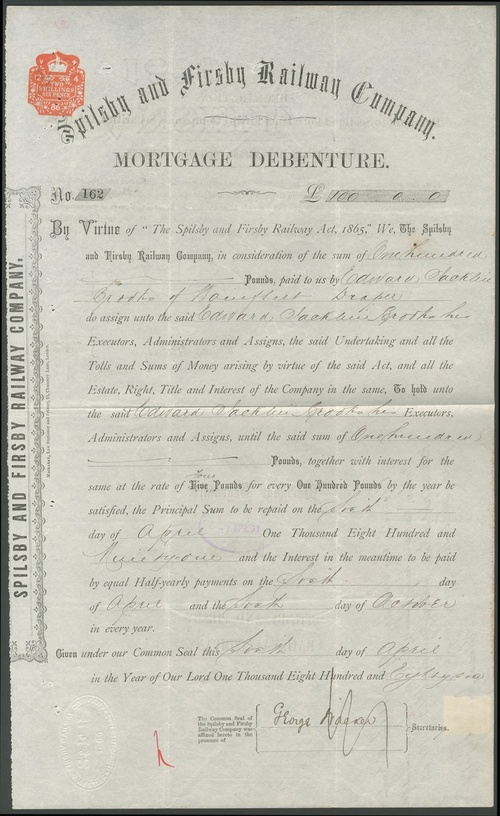 12 4
TWO
SHILLINGS
SIX PENCE
86
Spilsby and Firsby Railway Company.
MORTGAGE DEBENTURE.
No. 162 £ 100 0. 0
By Virtue of "The Spilsby and Firsby Railway Act, 1865," We, The Spilsby
and Firsby Railway Company, in consideration of the sum of One hundred
Pounds, paid to us by Edward
of Draper
do assign unto the said Edward his
Executors, Administrators and Assigns, the said Undertaking and all the
Tolls and Sums of Money arising by virtue of the said Act, and all the
Estate, Right, Title and Interest of the Company in the same, To hold unto
the said Edward his Executors,
Administrators and Assigns, until the said sum of One hundred
Pounds, together with interest for the
Four
same at the rate of Five Pounds for every One Hundred Pounds by the year be
satisfied, the Principal Sum to be repaid on the
day of April One Thousand Eight Hundred and
Ninety one and the Interest in the meantime to be paid
by equal Half-yearly payments on the day
of April and the day of October
in every year.
Given under our Common Seal this day of April
in the Year of Our Lord One Thousand Eight Hundred and Eighty six
The Common Seal of
the Spilsby and Firsby
Railway Company was
affixed hereto in the
presence of
George Secretary.
SPILSBY AND FIRSBY RAILWAY COMPANY.